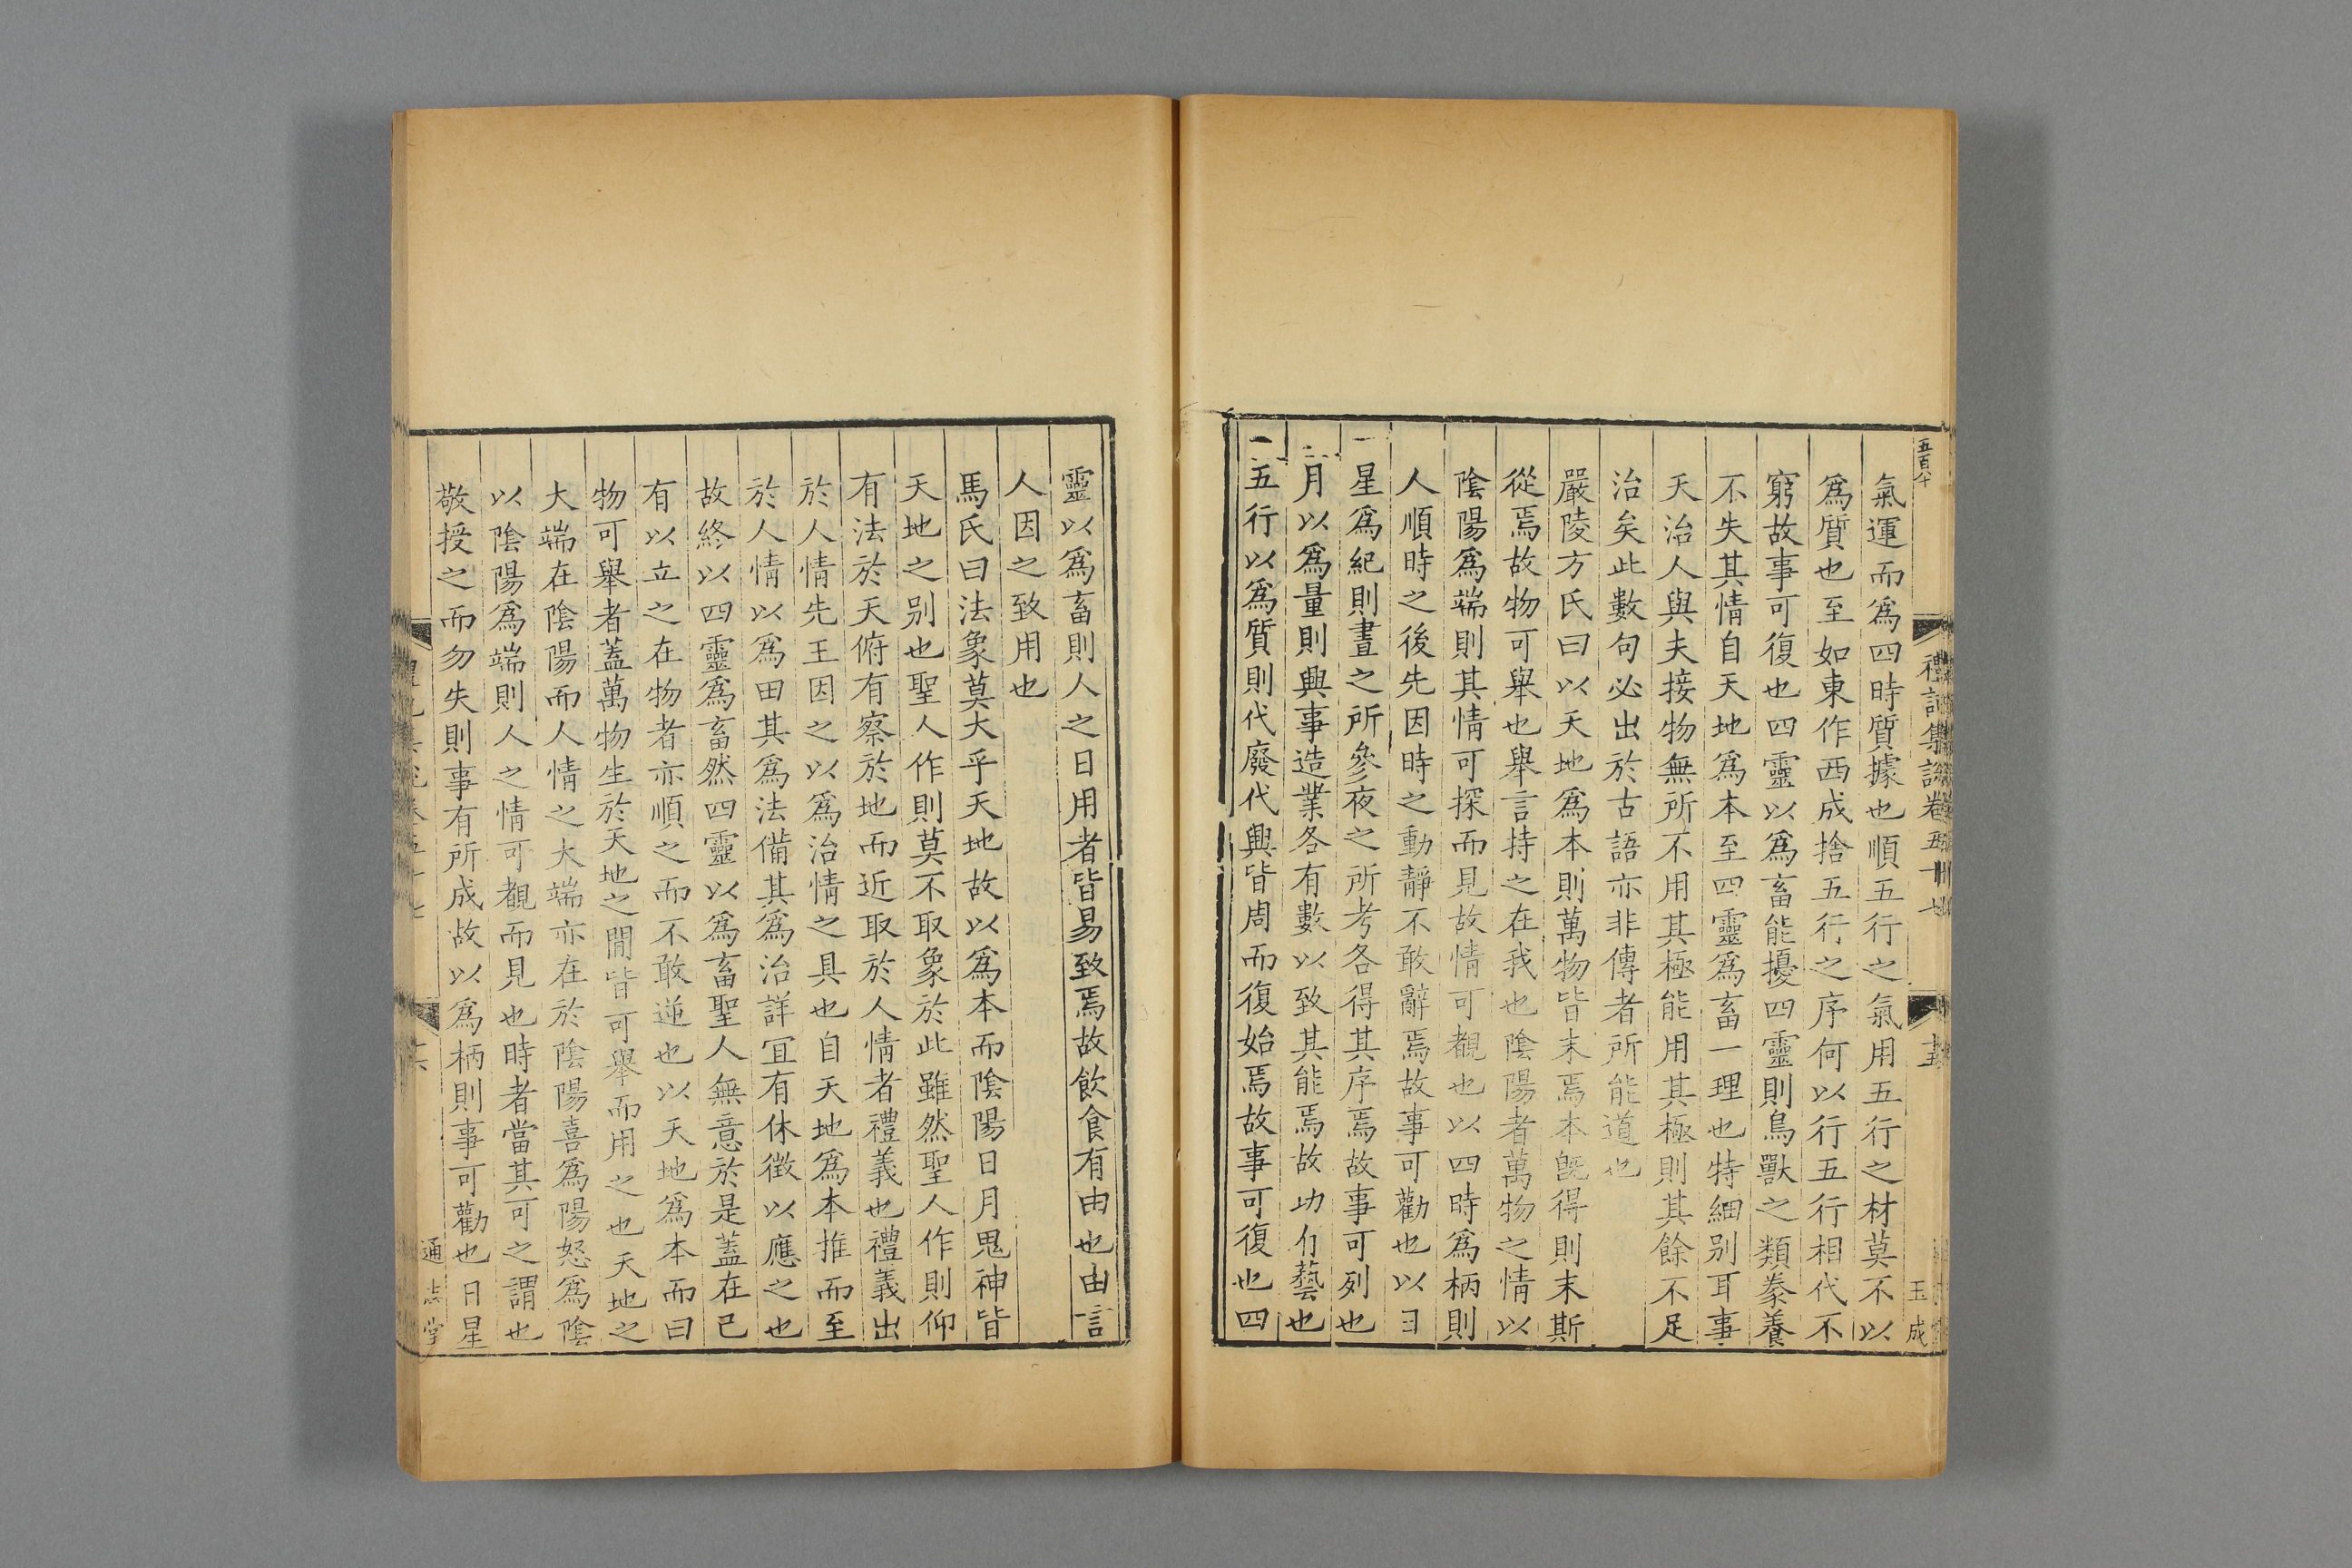 五百八十
禮記集說卷五十七
十五
玉成
氣運而爲四時質據也順五行之氣用五行之材莫不以
爲質也至如東作西成捨五行之序何以行五行相代不
窮故事可復也四靈以爲畜能擾四靈則鳥獸之類豢養
不失其情自天地爲本至四靈爲畜一理也特細别耳事
天治人與夫接物無所不用其極能用其極則其餘不足
治矣此數句必出於古語亦非傳者所能道也
嚴陵方氏曰以天地爲本則萬物皆末焉本旣得則末斯
從焉故物可舉也舉言持之在我也陰陽者萬物之情以
陰陽爲端則其情可探而見故情可覩也以四時爲柄則
人順時之後先因時之動靜不敢辭焉故事可勸也以日
星爲紀則晝之所參夜之所考各得其序焉故事可列也
月以爲量則興事造業各有數以致其能焉故功有藝也
五行以爲質則代廢代興皆周而復始焉故事可復也四
靈以爲畜則人之日用者皆易致焉故飲食有由也由言
人因之致用也
馬氏曰法象莫大乎天地故以爲本而陰陽日月鬼神皆
天地之别也聖人作則莫不取象於此雖然聖人作則仰
有法於天俯有察於地而近取於人情者禮義也禮義出
於人情先王因之以爲治情之具也自天地爲本推而至
於人情以爲田其爲法備其爲治詳宜有休徵以應之也
故終以四靈爲畜然四靈以爲畜聖人無意於是蓋在已
有以立之在物者亦順之而不敢逆也以天地爲本而曰
物可舉者蓋萬物生於天地之間皆可舉而用之也天地之
大端在陰陽而人情之大端亦在於陰陽喜爲陽怒爲陰
以陰陽爲端則人之情可覩而見也時者當其可之謂也
敬授之而勿失則事有所成故以爲柄則事可勸也日星
通志堂